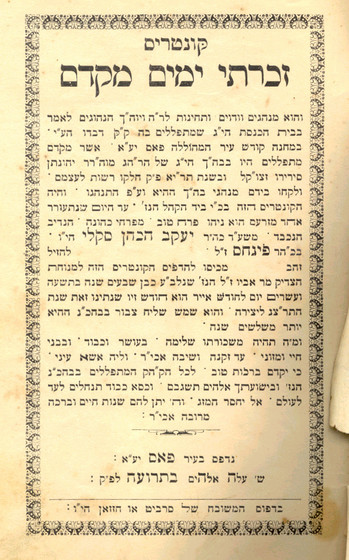 קונטריס
זכרתי ימים מקדם
והוא מנהגים וודויים ותחינות לר״ה ויוה״ך הנהוגים לאמר
בבית הכנסת הי״ג שמתפללים בה ק״ק דבדו הע״י
במחנה קודש עיר המהוללה פאס יע״א אשר מקדם
מתפללים היו בבה״ך הי״ג של הר״הג מוה״רר יהונתן
סירירו זצו״קל ובשנת תר״יא פ״ק חלקו רשות לעצמם
ולקחו בידם מנהגי בה״ך ההיא וע״פ התנהגו וחיה
הקונטריס הזה בכ״י ביד הקהל הנז׳ עד היום שנתעורר
אחד מזרעם הוא ניהו פרח טוב מפרחי כהונה הנדיב
הנכבד משע״ד כה״ר יעקב הכהן סקלי הי״ו
בכ״הר פינחס ז״ל להזיל
זהב מכיסו להדפיס הקונטריס הזה למנוחת
הצדיק מר אביו ז״ל הנז׳ שנלב״ע כבן שבעים שנה בתשעה
ועשרים יום לחודש אייר הוא חודש זיו שנתינו זאת שנת
התר״צג ליצירה והוא שמש שליח צבור בבהכ״נ ההיא
יותר משלשים שנה
ומ״ה תהיה משכורתו שלימה בעושר וכבוד ובבני
חיי ומזוני עד זקנה ושיבה אבי״ר וליה אשא עיני
כי יקדם ברכות טוב לכל הק״הק המתפללים בבהכ״נ
הנז׳ ובישועתך אלהים תשגבם וכסא כבוד תנחלים לעד
לעולם אל יחסר המזג וה׳ יתן להם שנות חיים וברכה
מרובה אבי״ר
נדפס בעיר פאס יע״א
ש׳ עלה אלהים בתרועה לפ״ק
בדפוס המשובח של סרביט או חזזאן הי״ו